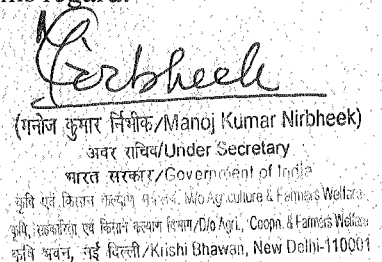 this regard.
Nirbheek
(मनोज कुमार निर्भीक/Manoj Kumar Nirbheek)
अवर सचिव/Under Secretary
भारत सरकार/Government of India
कृषि एवं किसान कल्याण मंत्रालय, M/o Agriculture & Farmers Welfare
कृषि, सहकारिता एवं किसान कल्याण विभाग/D/o Agri., Coopn. & Farmers Welfare
कृषि भवन, नई दिल्ली/Krishi Bhawan, New Delhi-110001